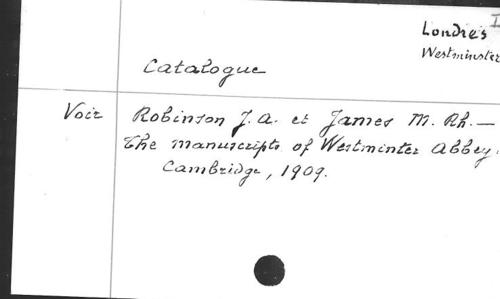 Londres I
Westminster
Catalogue
Voir Robinson J. A. et James M. Rh. —
The manuscripts of Westminter Abbey.
Cambridge, 1909.